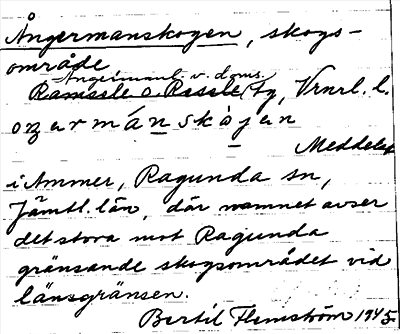 Ångermanskogen, skogs-
område
Ångermanl. v. doms.
Ramsele o. Resele tg, Vrnrl. l.
ozərmánskò̀jən
Meddelat
i Ammer, Ragunda sn,
Jämtl. län, där namnet avser
det stora mot Ragunda
gränsande skogsområdet vid
länsgränsen.
Bertil Flemström 1945.